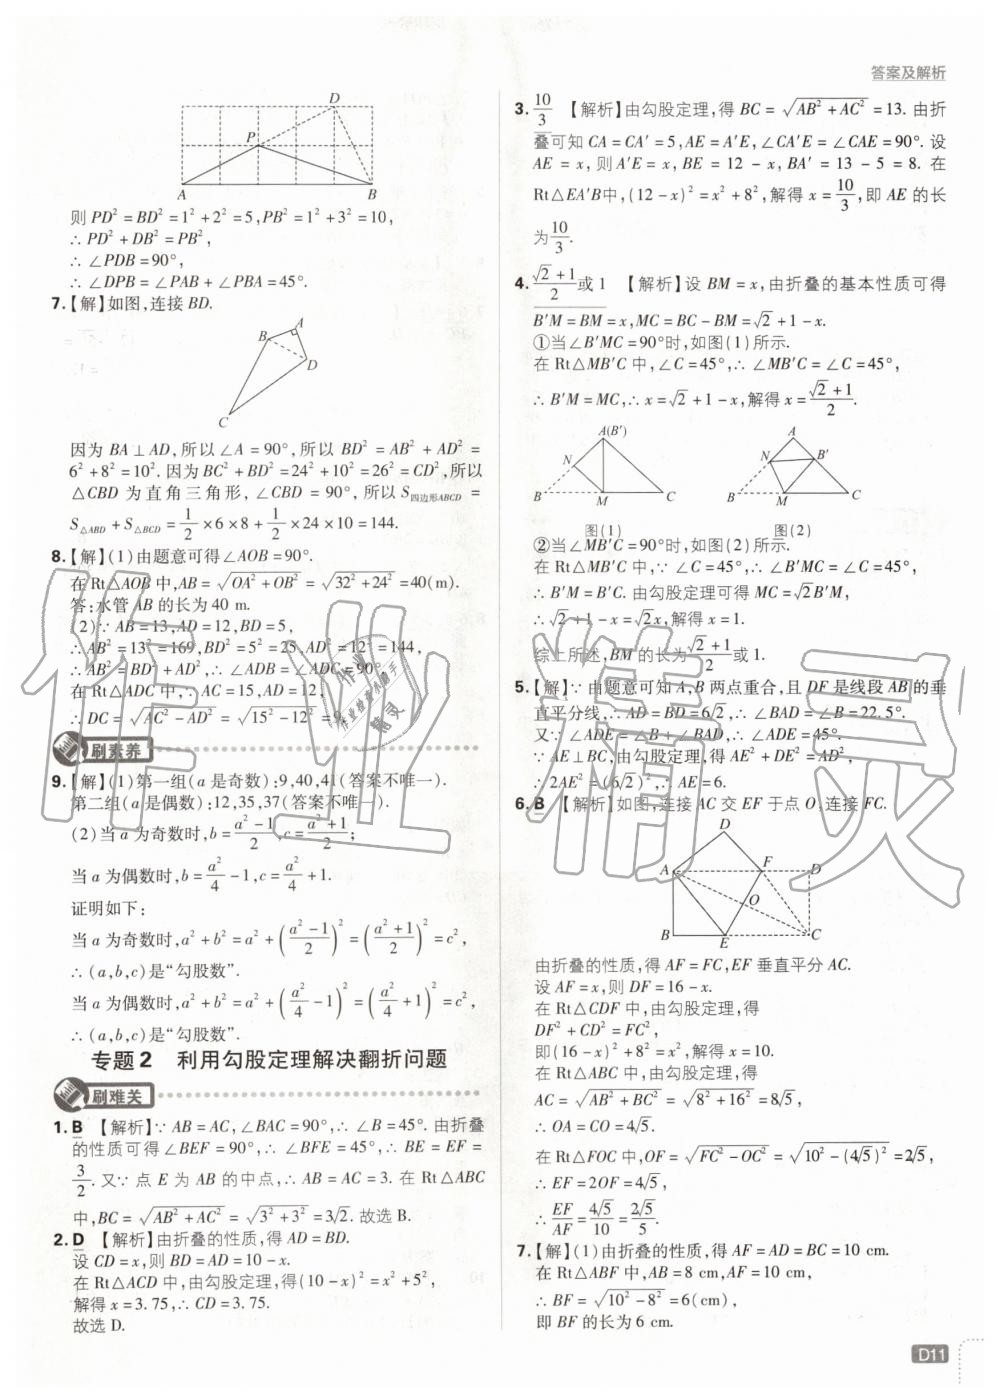 答案及解析
D
P
A
B
则 PD²=BD²=1²+2²=5,PB²=1²+3²=10,
∴ PD²+DB²=PB²,
∴ ∠PDB=90°,
∴ ∠DPB=∠PAB+∠PBA=45°.
7.【解】如图,连接 BD.
A
B
D
C
因为 BA⊥AD,所以∠A=90°,所以 BD²=AB²+AD²=
6²+8²=10². 因为 BC²+BD²=24²+10²=26²=CD²,所以
△CBD 为直角三角形,∠CBD=90°,所以 S四边形ABCD=
S△ABD+S△BCD=1/2×6×8+1/2×24×10=144.
8.【解】(1)由题意可得∠AOB=90°.
在 Rt△AOB 中,AB=√(OA²+OB²)=√(32²+24²)=40(m).
答:水管 AB 的长为 40 m.
(2)∵ AB=13,AD=12,BD=5,
∴ AB²=13²=169,BD²=5²=25,AD²=12²=144,
∴ AB²=BD²+AD²,∴ ∠ADB=∠ADC=90°.
在 Rt△ADC 中,∵ AC=15,AD=12,
∴ DC=√(AC²-AD²)=√(15²-12²)=9.
刷素养
9.【解】(1)第一组(a 是奇数):9,40,41(答案不唯一).
第二组(a 是偶数):12,35,37(答案不唯一).
(2)当 a 为奇数时,b=(a²-1)/2,c=(a²+1)/2;
当 a 为偶数时,b=a²/4-1,c=a²/4+1.
证明如下:
当 a 为奇数时,a²+b²=a²+((a²-1)/2)²=((a²+1)/2)²=c²,
∴ (a,b,c)是“勾股数”.
当 a 为偶数时,a²+b²=a²+(a²/4-1)²=(a²/4+1)²=c²,
∴ (a,b,c)是“勾股数”.
专题2 利用勾股定理解决翻折问题
刷难关
1. B 【解析】∵ AB=AC,∠BAC=90°,∴ ∠B=45°. 由折叠
的性质可得∠BEF=90°,∴ ∠BFE=45°,∴ BE=EF=
3/2. 又∵ 点 E 为 AB 的中点,∴ AB=AC=3. 在 Rt△ABC
中,BC=√(AB²+AC²)=√(3²+3²)=3√2. 故选 B.
2. D 【解析】由折叠的性质,得 AD=BD.
设 CD=x,则 BD=AD=10-x.
在 Rt△ACD 中,由勾股定理,得(10-x)²=x²+5²,
解得 x=3.75,∴ CD=3.75.
故选 D.
3. 10/3 【解析】由勾股定理,得 BC=√(AB²+AC²)=13. 由折
叠可知 CA=CA′=5,AE=A′E,∠CA′E=∠CAE=90°. 设
AE=x,则 A′E=x,BE=12-x,BA′=13-5=8. 在
Rt△EA′B中,(12-x)²=x²+8²,解得 x=10/3,即 AE 的长
为10/3.
4. (√2+1)/2或 1 【解析】设 BM=x,由折叠的基本性质可得
B′M=BM=x,MC=BC-BM=√2+1-x.
①当∠B′MC=90°时,如图(1)所示.
在 Rt△MB′C 中,∠C=45°,∴ ∠MB′C=∠C=45°,
∴ B′M=MC,∴ x=√2+1-x,解得 x=(√2+1)/2.
A(B′)
N
B
M
C
图(1)
A
N
B′
B
M
C
图(2)
②当∠MB′C=90°时,如图(2)所示.
在 Rt△MB′C 中,∵ ∠C=45°,∴ ∠B′MC=∠C=45°,
∴ B′M=B′C. 由勾股定理可得 MC=√2B′M,
∴ √2+1-x=√2x,解得 x=1.
综上所述,BM 的长为(√2+1)/2或 1.
5.【解】∵ 由题意可知 A,B 两点重合,且 DF 是线段 AB 的垂
直平分线,∴ AD=BD=6√2,∴ ∠BAD=∠B=22.5°.
又∵ ∠ADE=∠B+∠BAD,∴ ∠ADE=45°.
∵ AE⊥BC,由勾股定理,得 AE²+DE²=AD²,
∴ 2AE²=(6√2)²,∴ AE=6.
6. B 【解析】如图,连接 AC 交 EF 于点 O,连接 FC.
A
F
D
O
B
E
C
由折叠的性质,得 AF=FC,EF 垂直平分 AC.
设 AF=x,则 DF=16-x.
在 Rt△CDF 中,由勾股定理,得
DF²+CD²=FC²,
即(16-x)²+8²=x²,解得 x=10.
在 Rt△ABC 中,由勾股定理,得
AC=√(AB²+BC²)=√(8²+16²)=8√5,
∴ OA=CO=4√5.
在 Rt△FOC 中,OF=√(FC²-OC²)=√(10²-(4√5)²)=2√5,
∴ EF=2OF=4√5,
∴ EF/AF=4√5/10=2√5/5.
7.【解】(1)由折叠的性质,得 AF=AD=BC=10 cm.
在 Rt△ABF 中,AB=8 cm,AF=10 cm,
∴ BF=√(10²-8²)=6(cm),
即 BF 的长为 6 cm.
D11
作业精灵